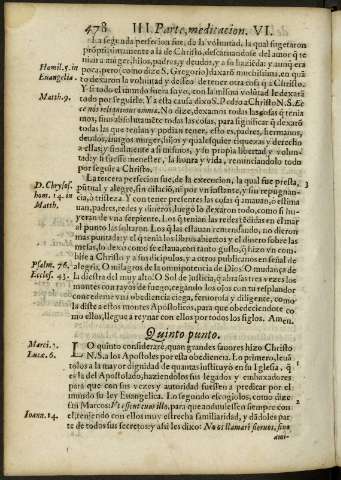 478 III. Parte, meditacion. VI.
La segunda perfecion fue, de la voluntad, la qual sugetaron
Homil. 5. in
Euangelia.
poca, pero (como dize S. Gregorio) dexarõ muchissima, en quã
to dexaron la voluntad y desseo de tener otra cosa q̃ a Christo.
Y si todo el mundo fuera suyo, con la misma volũtad le dexarã
Matth. 9.
todo por seguirle. Y a esta causa dixo S. Pedro a Christo N. S. Ec
ce nos reliquimus omnia. No dize, dexamos todas las cosas q̃ tenia
mos, sino absolutamẽte todas las cosas, para significar q̃ dexarõ
todas las que tenian y podian tener, esto es, padres, hermanos,
deudos, amigos, muger, hijos y qualesquier riquezas y derecho
a ellas; y finalmente a si mismos, y su propia libertad y volun-
tad: y si fuesse menester, la honra y vida, renunciandolo todo
por seguir a Christo.
La tercera perfecion fue, de la execucion, la qual fue presta,
D. Chrysos.
hom. 14. in
Matth.
puntual y alegre, sin dilaciõ, ni por vn instante, y sin repugnan-
cia, o tristeza. Y con tener presentes las cosas q̃ amauan, o estima
uan, padres, redes y dineros, luego lo dexaron todo, como si hu-
yeran de vna serpiente. Los q̃ tenian las redes tẽdidas en el mar
al punto las soltaron. Los q̃ las estauan remendando, no dieron
mas puntada: y el q̃ tenia los libros abiertos y el dinero sobre las
mesas, lo dexò como se estaua, con tanto gusto, q̃ hizo vn com-
bite a Christo y a sus dicipulos, y a otros publicanos en señal de
Psalm. 76.
Eccles. 43.
alegria. O milagros de la omnipotencia de Dios. O mudança de
la diestra del muy alto. O Sol de justicia, q̃ abrasas tres vezes los
montes con rayos de fuego, cegando los ojos con tu resplandor
concedeme vna obediencia ciega, feruorosa y diligente, como
la diste a estos montes Apostolicos, para que obedeciendote co
mo ellos, llegue a reynar con ellos por todos los siglos. Amen.
Quinto punto.
Marci. 3.
Lucæ. 6.
LO quinto considerarè, quan grandes fauores hizo Christo
N. S. a los Apostoles por esta obediencia. Lo primero, leuã
tolos a la mayor dignidad de quantas instituyò en su Iglesia, q̃
es la del Apostolado, haziendolos sus legados y embaxadores
para que con sus vezes y autoridad fuessen a predicar por el
2 mundo su ley Euangelica. Lo segundo escogiolos, como dize
San Marcos: Vt essent cum illo, para que anduuiessen siempre con
el, teniendo con ellos muy estrecha familiaridad, y dãdoles par-
Ioann. 14.
te de todos sus secretos: y ahi les dixo: No os llamarè sieruos, sino
ami-